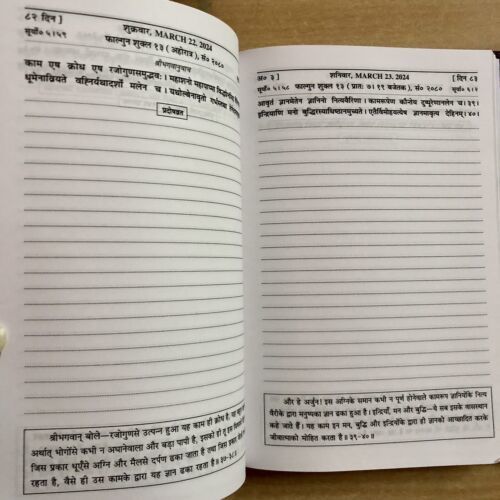 ८२ दिन ]
शुक्रवार, MARCH 22, 2024
सूर्यो० ५।५९
फाल्गुन शुक्ल १३ ( अहोरात्र ), सं० २०८०
श्रीभगवानुवाच
काम एष क्रोध एष रजोगुणसमुद्भवः। महाशनो महापाप्मा
धूमेनाव्रियते वह्निर्यथादर्शो मलेन च। यथोल्बेनावृतो
प्रदोषव्रत
श्रीभगवान् बोले—रजोगुणसे उत्पन्न हुआ यह काम ही क्रोध है,
अर्थात् भोगोंसे कभी न अघानेवाला और बड़ा पापी है, इसको ही तू इस
जिस प्रकार धूएँसे अग्नि और मैलसे दर्पण ढका जाता है तथा जिस प्रकार
रहता है, वैसे ही उस कामके द्वारा यह ज्ञान ढका रहता है॥ ३७-३८॥
अ० ३ ]
शनिवार, MARCH 23, 2024
[ दिन ८३
सूर्यो० ५।५८ फाल्गुन शुक्ल १३ ( प्रातः ७।११ बजेतक ), सं० २०८० सूर्या० ६।२
आवृतं ज्ञानमेतेन ज्ञानिनो नित्यवैरिणा। कामरूपेण कौन्तेय दुष्पूरेणानलेन च॥ ३९॥
इन्द्रियाणि मनो बुद्धिरस्याधिष्ठानमुच्यते। एतैर्विमोहयत्येष ज्ञानमावृत्य देहिनम्॥ ४०॥
और हे अर्जुन! इस अग्निके समान कभी न पूर्ण होनेवाले कामरूप ज्ञानियोंके नित्य
वैरीके द्वारा मनुष्यका ज्ञान ढका हुआ है। इन्द्रियाँ, मन और बुद्धि—ये सब इसके वासस्थान
कहे जाते हैं। यह काम इन मन, बुद्धि और इन्द्रियोंके द्वारा ही ज्ञानको आच्छादित करके
जीवात्माको मोहित करता है॥ ३९-४०॥